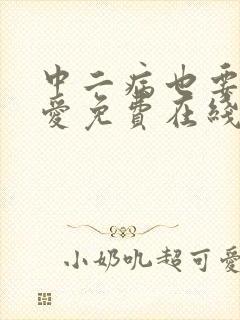 中二病也要
爱免费在线
小奶吼超可爱